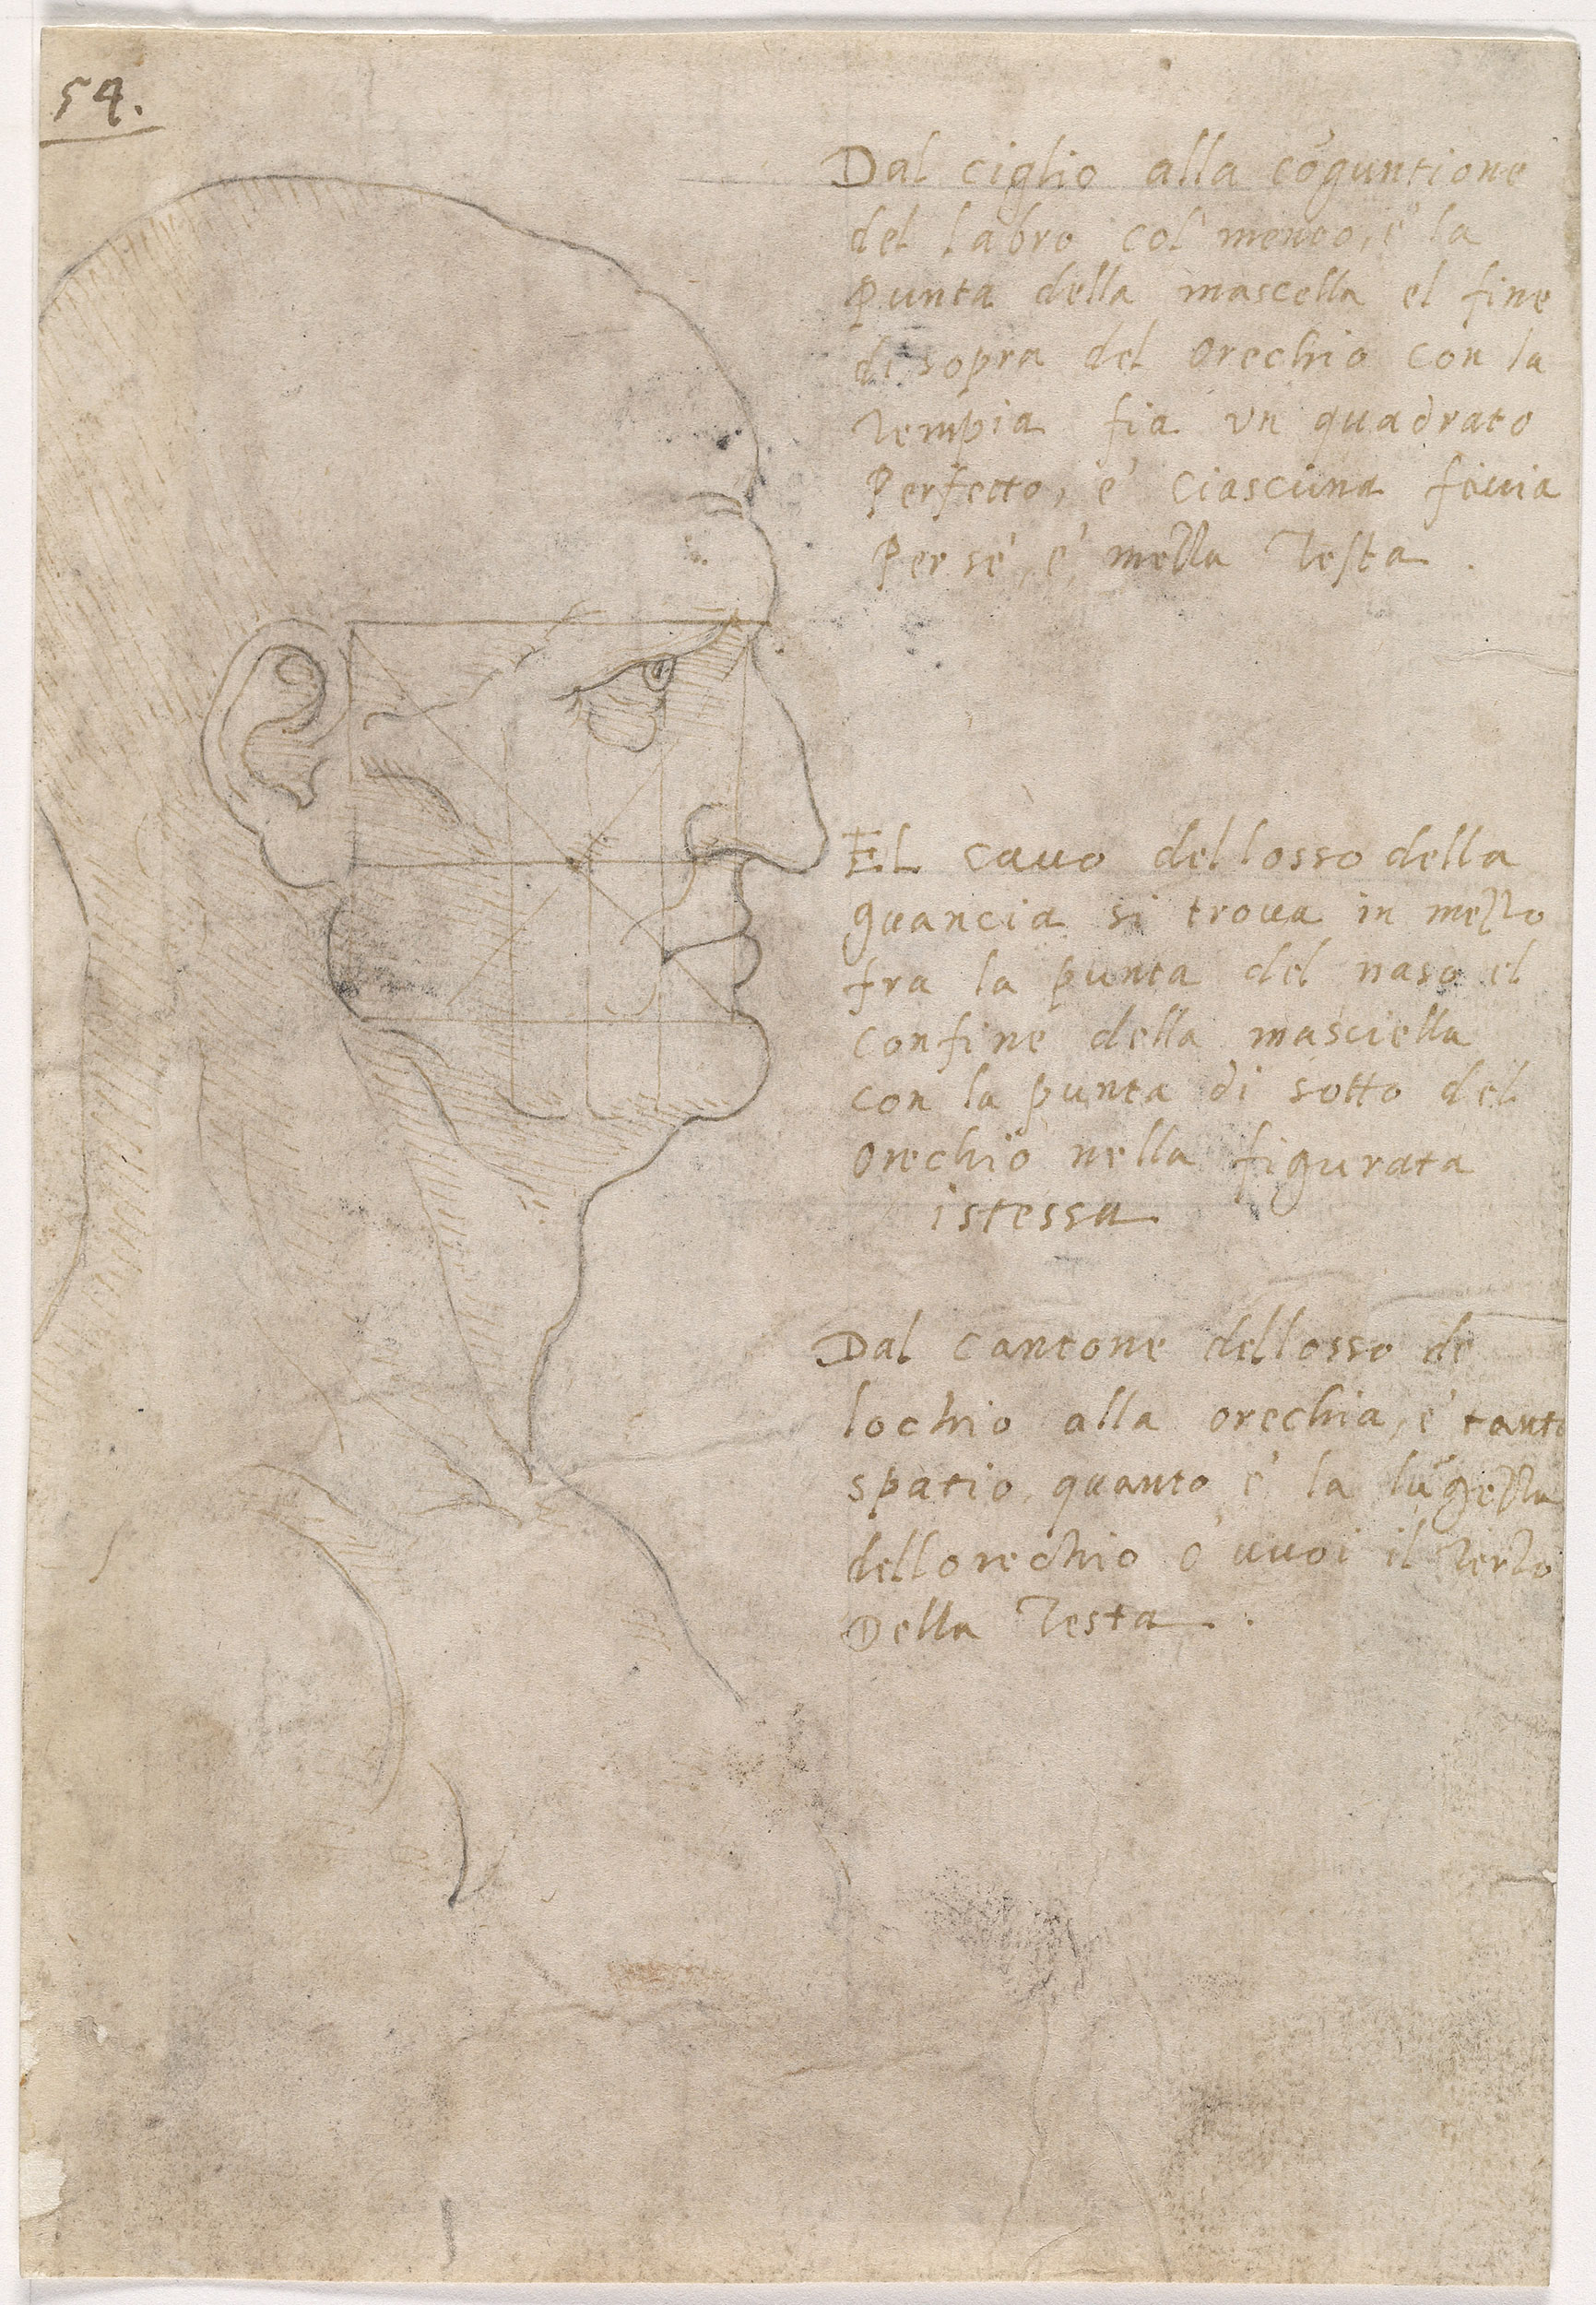 54.
Dal ciglio alla cōguntione
del labro col mento, e' la
Punta della mascella el fine
di sopra del orechio con la
tempia fia un quadrato
Perfetto, e' ciascuna faccia
Per sé, e' mezza testa.
El cavo dellosso della
guancia si trova in mezzo
fra la punta del naso el
confine della masciella
con la punta di sotto del
orechio nella figurata
istessa
Dal cantone dellosso de
lochio alla orechia, e' tanto
spatio, quanto e' la lūgezza
dellorechio o' vuoi il terzo
Della testa.